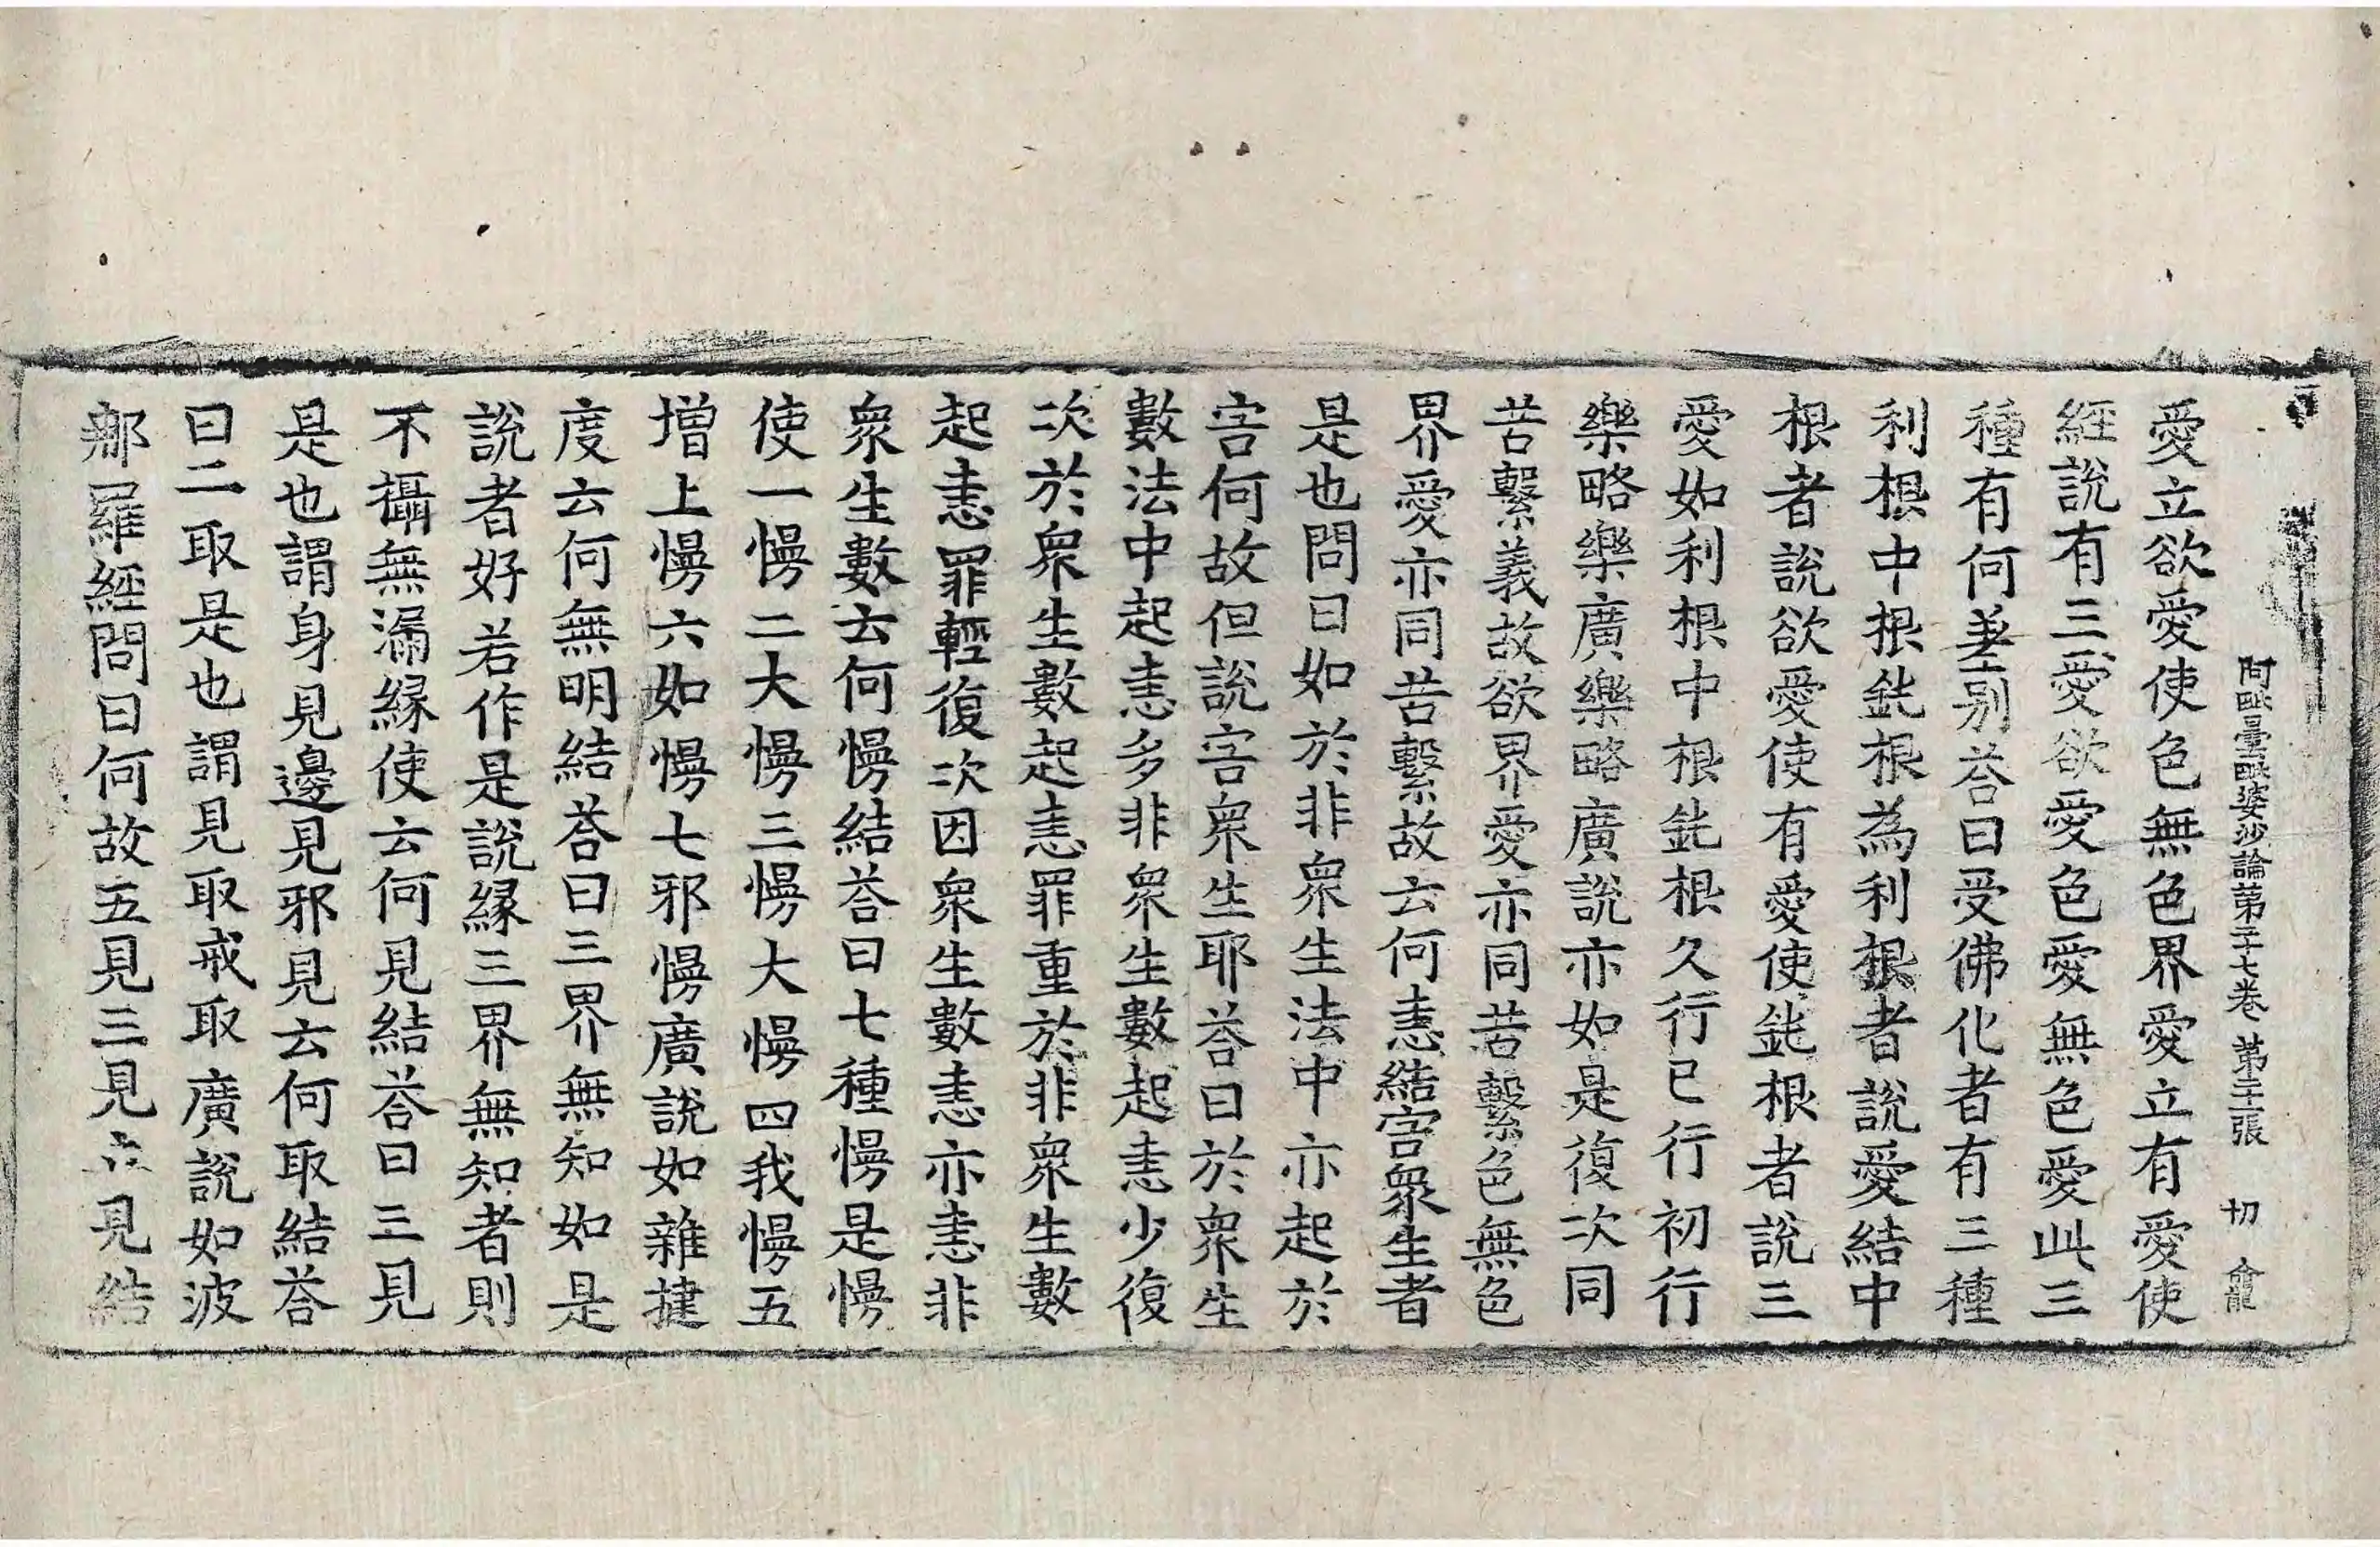 阿毗曇毗婆沙論第二十七卷 第二十一張 切 俞龍
愛立欲愛使色無色界愛立有愛使
經說有三愛欲愛色愛無色愛此三
種有何差别荅曰受佛化者有三種
利根中根鈍根為利根者說愛結中
根者說欲愛使有愛使鈍根者說三
愛如利根中根鈍根久行已行初行
樂略樂廣樂略廣說亦如是復次同
苦繫義故欲界愛亦同苦繫色無色
界愛亦同苦繫故云何恚結害衆生者
是也問曰如於非衆生法中亦起於
害何故但說害衆生耶荅曰於衆生
數法中起恚多非衆生數起恚少復
次於衆生數起恚罪重於非衆生數
起恚罪輕復次因衆生數恚亦恚非
衆生數云何慢結荅曰七種慢是慢
使一慢二大慢三慢大慢四我慢五
增上慢六如慢七邪慢廣說如雜揵
度云何無明結荅曰三界無知如是
說者好若作是說緣三界無知者則
不攝無漏緣使云何見結荅曰三見
是也謂身見邊見邪見云何取結荅
曰二取是也謂見取戒取廣說如波
郍羅經問曰何故五見三見立見結